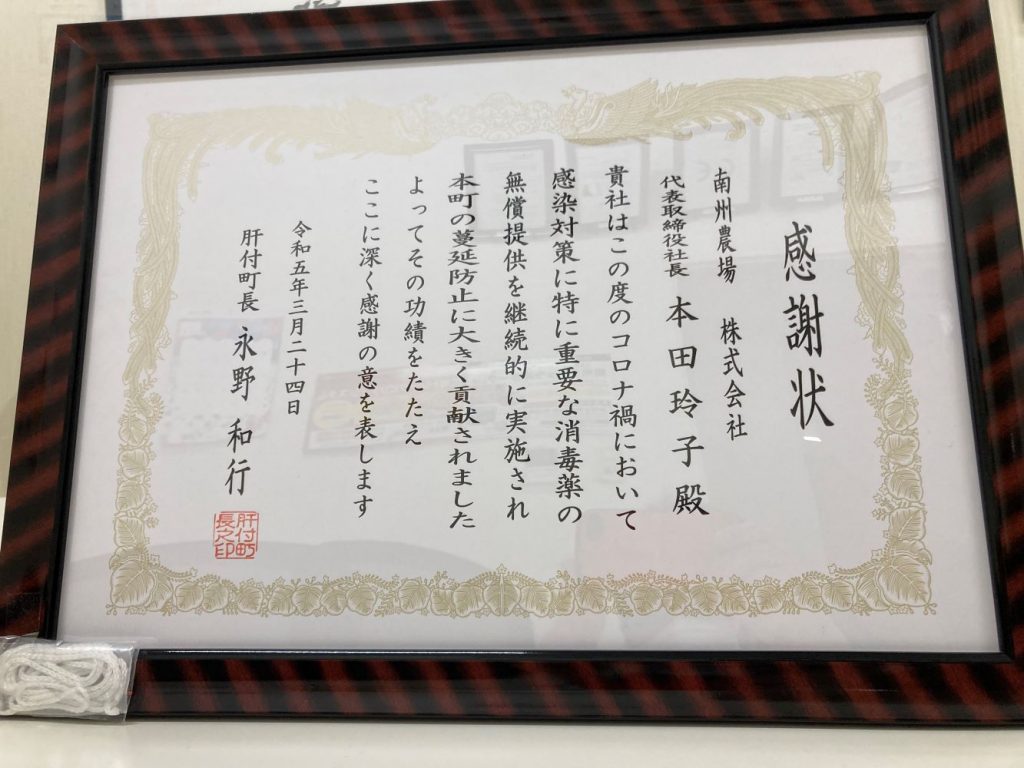 感謝状
南州農場 株式会社
代表取締役社長 本田玲子殿
貴社はこの度のコロナ禍において
感染対策に特に重要な消毒薬の
無償提供を継続的に実施され
本町の蔓延防止に大きく貢献されました
よってその功績をたたえ
ここに深く感謝の意を表します
令和五年三月二十四日
肝付町長 永野和行
肝付町
長之印